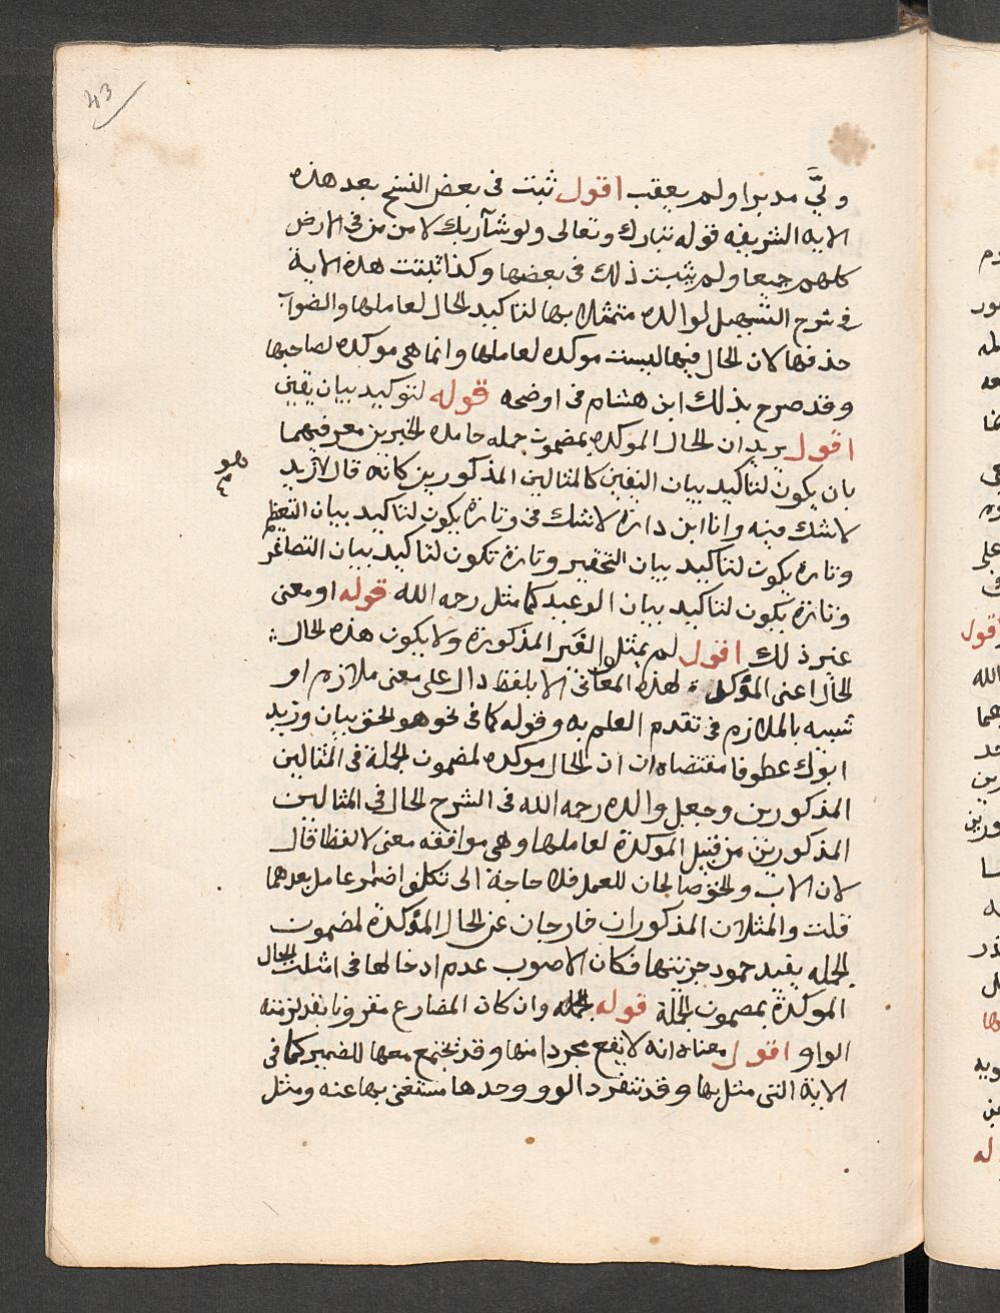 43
ولَّى مدبرا ولم يعقب اقول ثبت فى بعض النسخ بعد هذه
الايه الشريفه قوله تبارك وتعالى ولو شآ ربك لامن من فى الارض
كلهم جميعا ولم يثبت ذلك فى بعضها وكذا ثبتت هذه الاية
فى شرح التسهيل لوالده متمثلا بها لتاكيد الحال لعاملها والصواب
حذفها لان الحال فيها ليست موكده لعاملها وانما هى موكده لصاحبها
وقد صرح بذلك ابن هشام فى اوضحه قوله لتوكيد بيان يقين
اقول يريد ان الحال الموكده بمضمون جمله جامده الخبرين معرفيهما
بان يكون لتاكيد بيان اليقين كالمثالين المذكورين كانه قال لازيد
هو
لاشك فيه وانا ابن دارة لاشك فى وتارة يكون لتاكيد بيان التعظيم
وتاره يكون لتاكيد بيان التحقير وتارة تكون لتاكيد بيان التصاغر
وتارة يكون لتاكيد بيان الوعيد كما مثل رحمه الله قوله او معنى
غير ذلك اقول لم يمثلوا لغير المذكورة ولا يكون هذه الحال
الحال اعنى المؤكده لهذه المعانى الا بلفظ دال على معنى ملازم او
شبيه بالملازم فى تقدم العلم به وقوله كما فى نحو هو الحق بيان وزيد
ابوك عطوفا مقتضاه ان ان الحال موكده لمضمون الجملة فى المثالين
المذكورين وجعل والده رحمه الله فى الشرح الحال فى المثالين
المذكورين من قبيل الموكدة لعاملها وهى موافقه معنى لا لفظا قال
لان الاب والحق صالحان للعمل فلا حاجة الى تكلف اضمار عامل بعدهما
قلت والمثلان المذكوران خارجان عن الحال المؤكدة لمضمون
الجمله بقيد جمود جزئيها فكان الاصوب عدم ادخالها فى امثلت الحال
الموكدة بمصمون الجملة قوله الجمله وان كان المضارع مقرونا بقد لزمته
الواو اقول معناه انه لا يقع مجردا منها وقد تجتمع معها الضمير كما فى
الاية التى مثل بها وقد تنفرد الوو وحدها مستغنى بها عنه ومثل